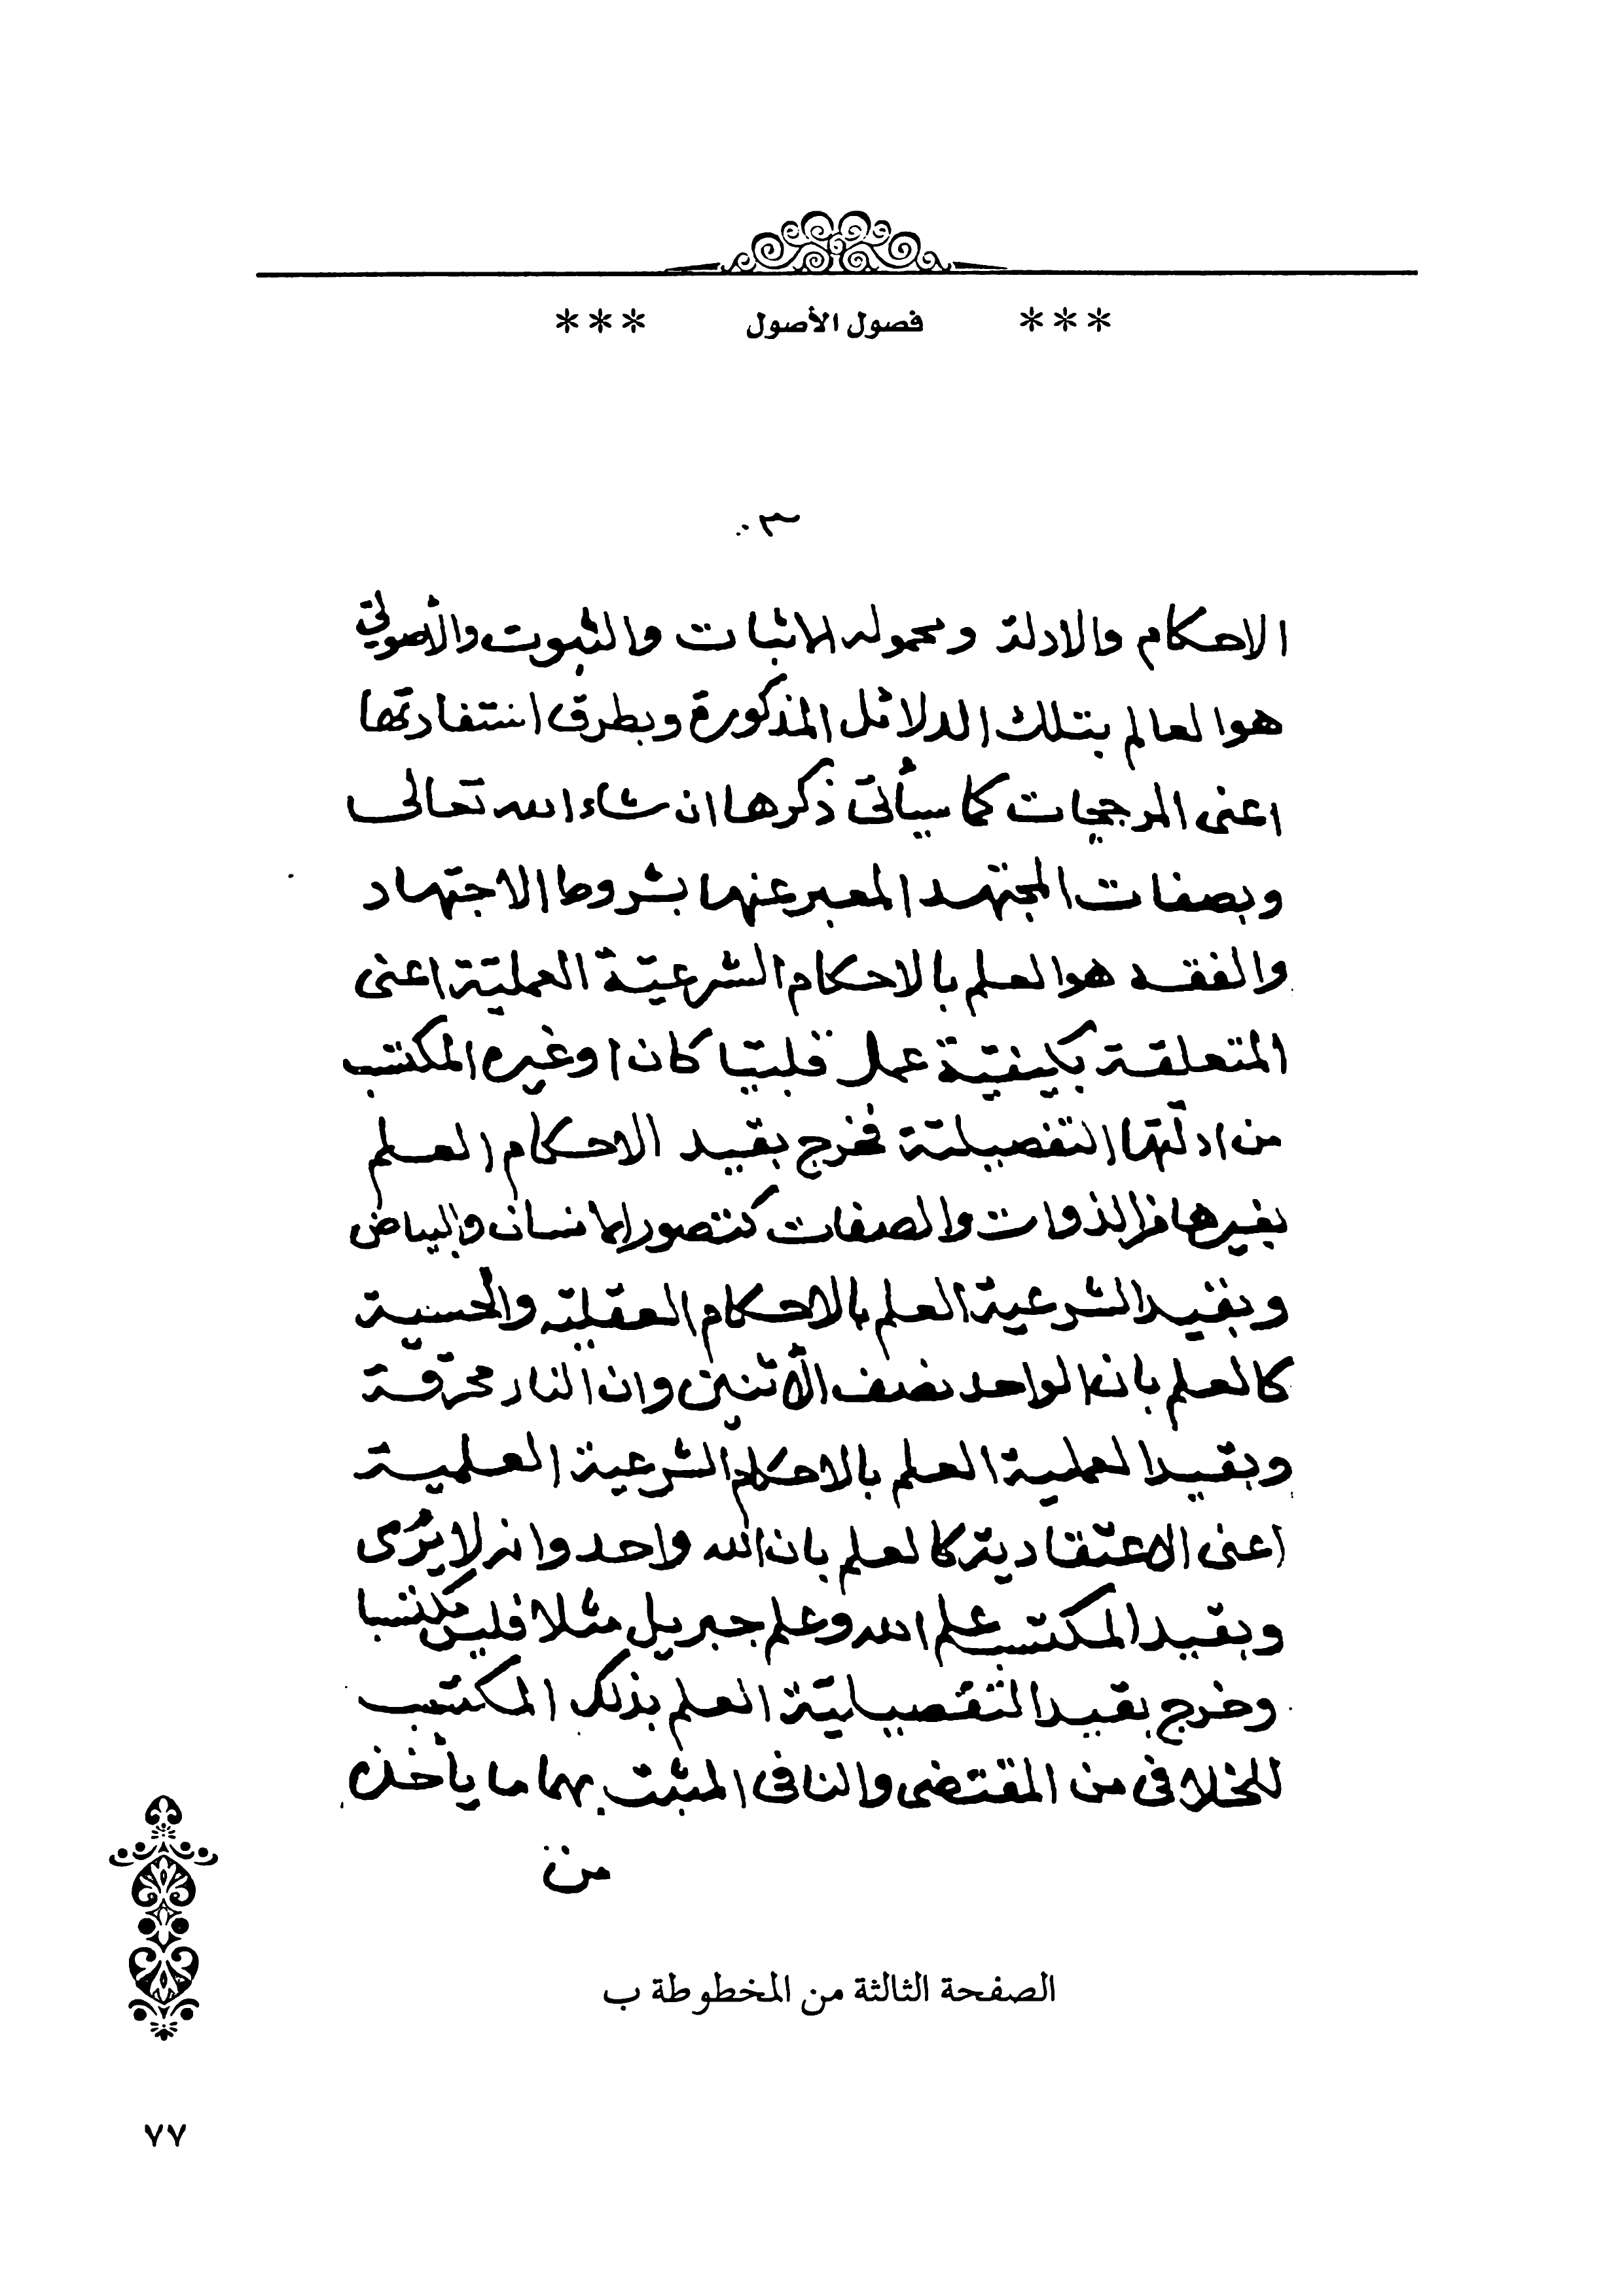 *** فصول الأصول ***
٣
الاحكام والادلة ومحموله الاثبات والثبوت والأصوليّ
هو العالم بتلك الدلائل المذكورة وبطرق استفادتها
اعنى المرجحات كما سيأتى ذكرها ان شاء الله تعالى
وبصفات المجتهد المعبر عنها بشروط الاجتهاد
والفقه هو العلم بالاحكام الشرعيّة العمليّة اعنى
المتعلقة بكيفيّة عمل قلبيّا كان او غيره المكتسب
من ادلّتها التفصيليّة فخرج بقيد الاحكام العلم
بغيرها من الذوات والصفات كتصور الانسان والبياض
وبقيد الشرعية العلم بالاحكام العقلية والحسية
كالعلم بان الواحد نصف الأثنين وان النار محرّقة
وبقيد العملية العلم بالاحكام الشرعية العلمية
اعنى الاعتقادية كالعلم بان الله واحد وانه لا يُرى
وبقيد المكتسب علم الله وعلم جبريل مثلا فليس مكتسبا
وخرج بقيد التفصيليّة العلم بذلك المكتسب
للخلافى من المقتضى والنافى المثبت بهما ما يأخذه
من
الصفحة الثالثة من المخطوطة ب
٧٧